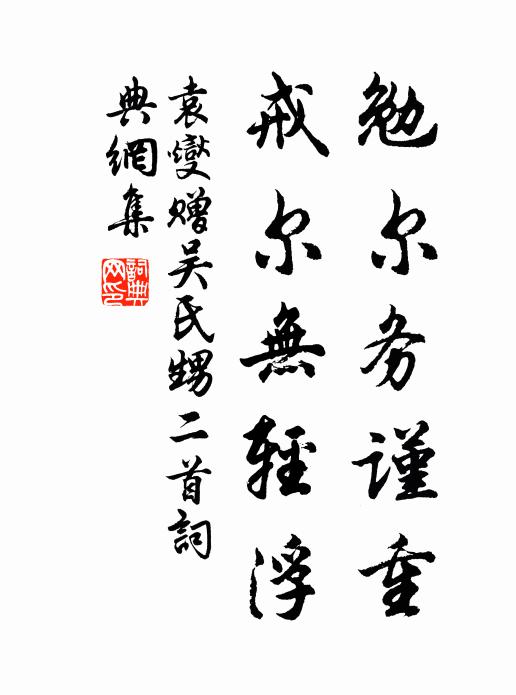 勉尔务謹重
戒尔無輕浮
袁燮赠吴氏甥二首詞
典網集
詞典网印